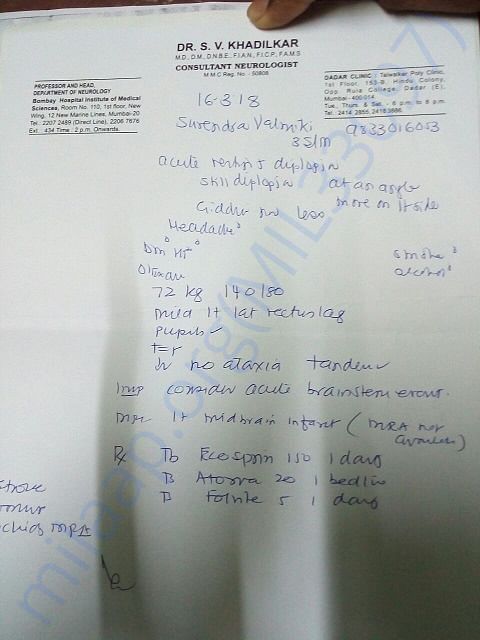 DR. S. V. KHADILKAR
M.D., D.M., D.N.B.E., F.I.A.N., F.I.C.P., F.A.M.S.
CONSULTANT NEUROLOGIST
M M C Reg. No. - 50808
PROFESSOR AND HEAD,
DEPARTMENT OF NEUROLOGY
Bombay Hospital Institute of Medical
Sciences, Room No. 110, 1st floor, New
Wing, 12 New Marine Lines, Mumbai-20
Tel.: 2207 2489 (Direct Line), 2206 7676
Ext.: 434 Time : 2 p.m. Onwards.
DADAR CLINIC : Talwalkar Poly Clinic,
1st Floor, 153-B, Hindu Colony,
Opp. Ruia College, Dadar (E),
Mumbai - 400 014.
Tue., Thurs. & Sat. - 6 p.m. to 8 p.m.
Tel.: 2414 2855, 2418 3686.
16-3-18
Surendra Valmiki 9833016053
35/m
acute diplopia
still diplopia at an angle
more on lt side
Giddy less
Headache
Dm Ht
smoke
alcohol
O/Exam
72 kg 140/80
mild lt lat rectus lag
pupils ✓
no ataxia tandem
Imp consider acute brainstem event.
lt midbrain infarct (MRA not
available)
Rx Tb Ecosprin 150 1 daily
B Atorva 20 1 bedtime
B Folvite 5 1 daily
MRA
mijaap.org(MIL33907)